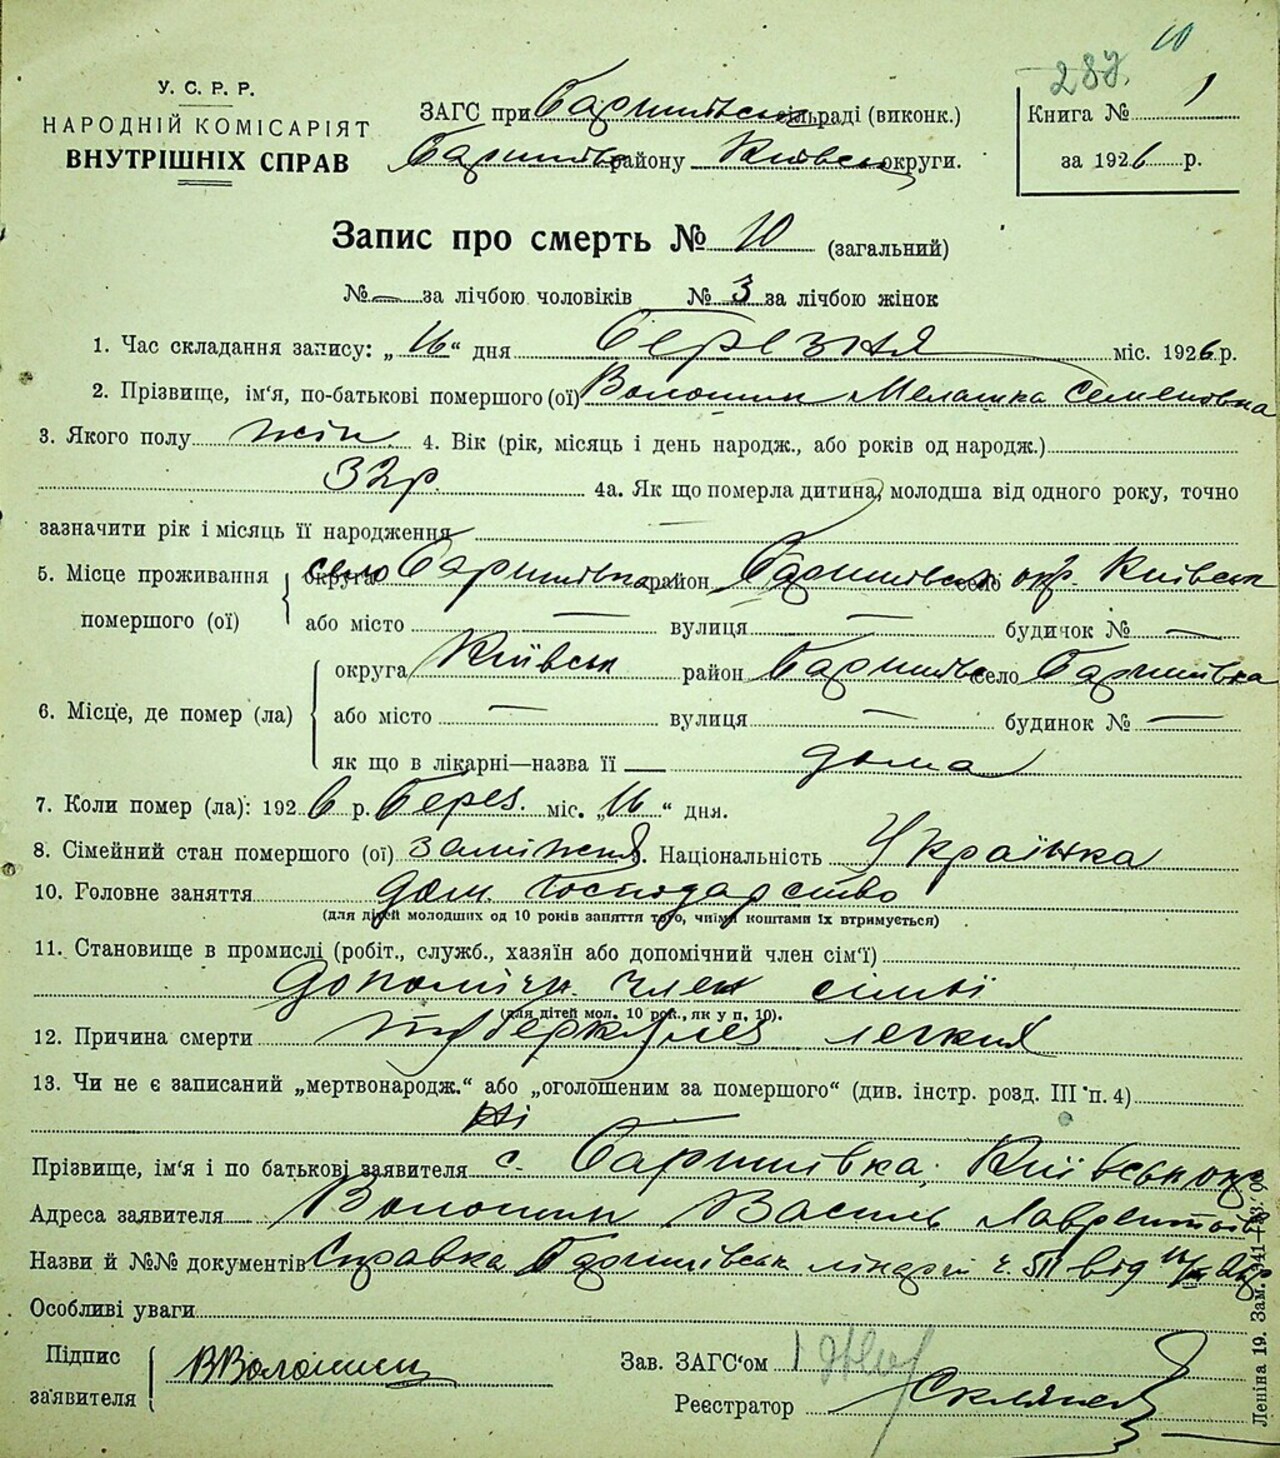 10
287.
У. С. Р. Р.
НАРОДНІЙ КОМІСАРІЯТ
ВНУТРІШНІХ СПРАВ
ЗАГС при Баришівськ сільраді (виконк.)
Баришівськ району Київськ округи.
Книга № 1
за 1926 р.
Запис про смерть № 10 (загальний)
№ — за лічбою чоловіків № 3 за лічбою жінок
1. Час складання запису: „16“ дня березня міс. 1926 р.
2. Прізвище, ім'я, по-батькові помершого (ої) Волошин Мелашка Семеновна
3. Якого полу жін. 4. Вік (рік, місяць і день народж., або років од народж.)
32 р. 4а. Як що померла дитина, молодша від одного року, точно
зазначити рік і місяць її народження —
5. Місце проживання помершого (ої) село Баришівка район Баришівськ окр. Київськ
або місто — вулиця — будинок № —
6. Місце, де помер (ла) округа Київськ район Баришівськ село Баришівка
або місто — вулиця — будинок № —
як що в лікарні—назва її — дома
7. Коли помер (ла): 1926 р. берез. міс. „16“ дня.
8. Сімейний стан помершого (ої) заміжня. Національність Українка
10. Головне заняття дом. господарство
(для дітей молодших од 10 років заняття того, чиїми коштами їх втримується)
11. Становище в промислі (робіт., служб., хазяїн або допомічний член сім'ї)
допомічн. член сімьї
(для дітей мол. 10 рок., як у п. 10).
12. Причина смерти туберкульоз легких
13. Чи не є записаний „мертвонародж.“ або „оголошеним за помершого“ (див. інстр. розд. III п. 4)
Ні
Прізвище, ім'я і по батькові заявителя с. Баришівка, Київськ окр
Адреса заявителя Волошин Василь Лаврентьів
Назви й №№ документів Справка Баришівськ лікарні ч. 511 від 16/III 26 р
Особливі уваги
Підпис заявителя ВВолошин
Зав. ЗАГС'ом
Реєстратор
Леніна 19. Зам.